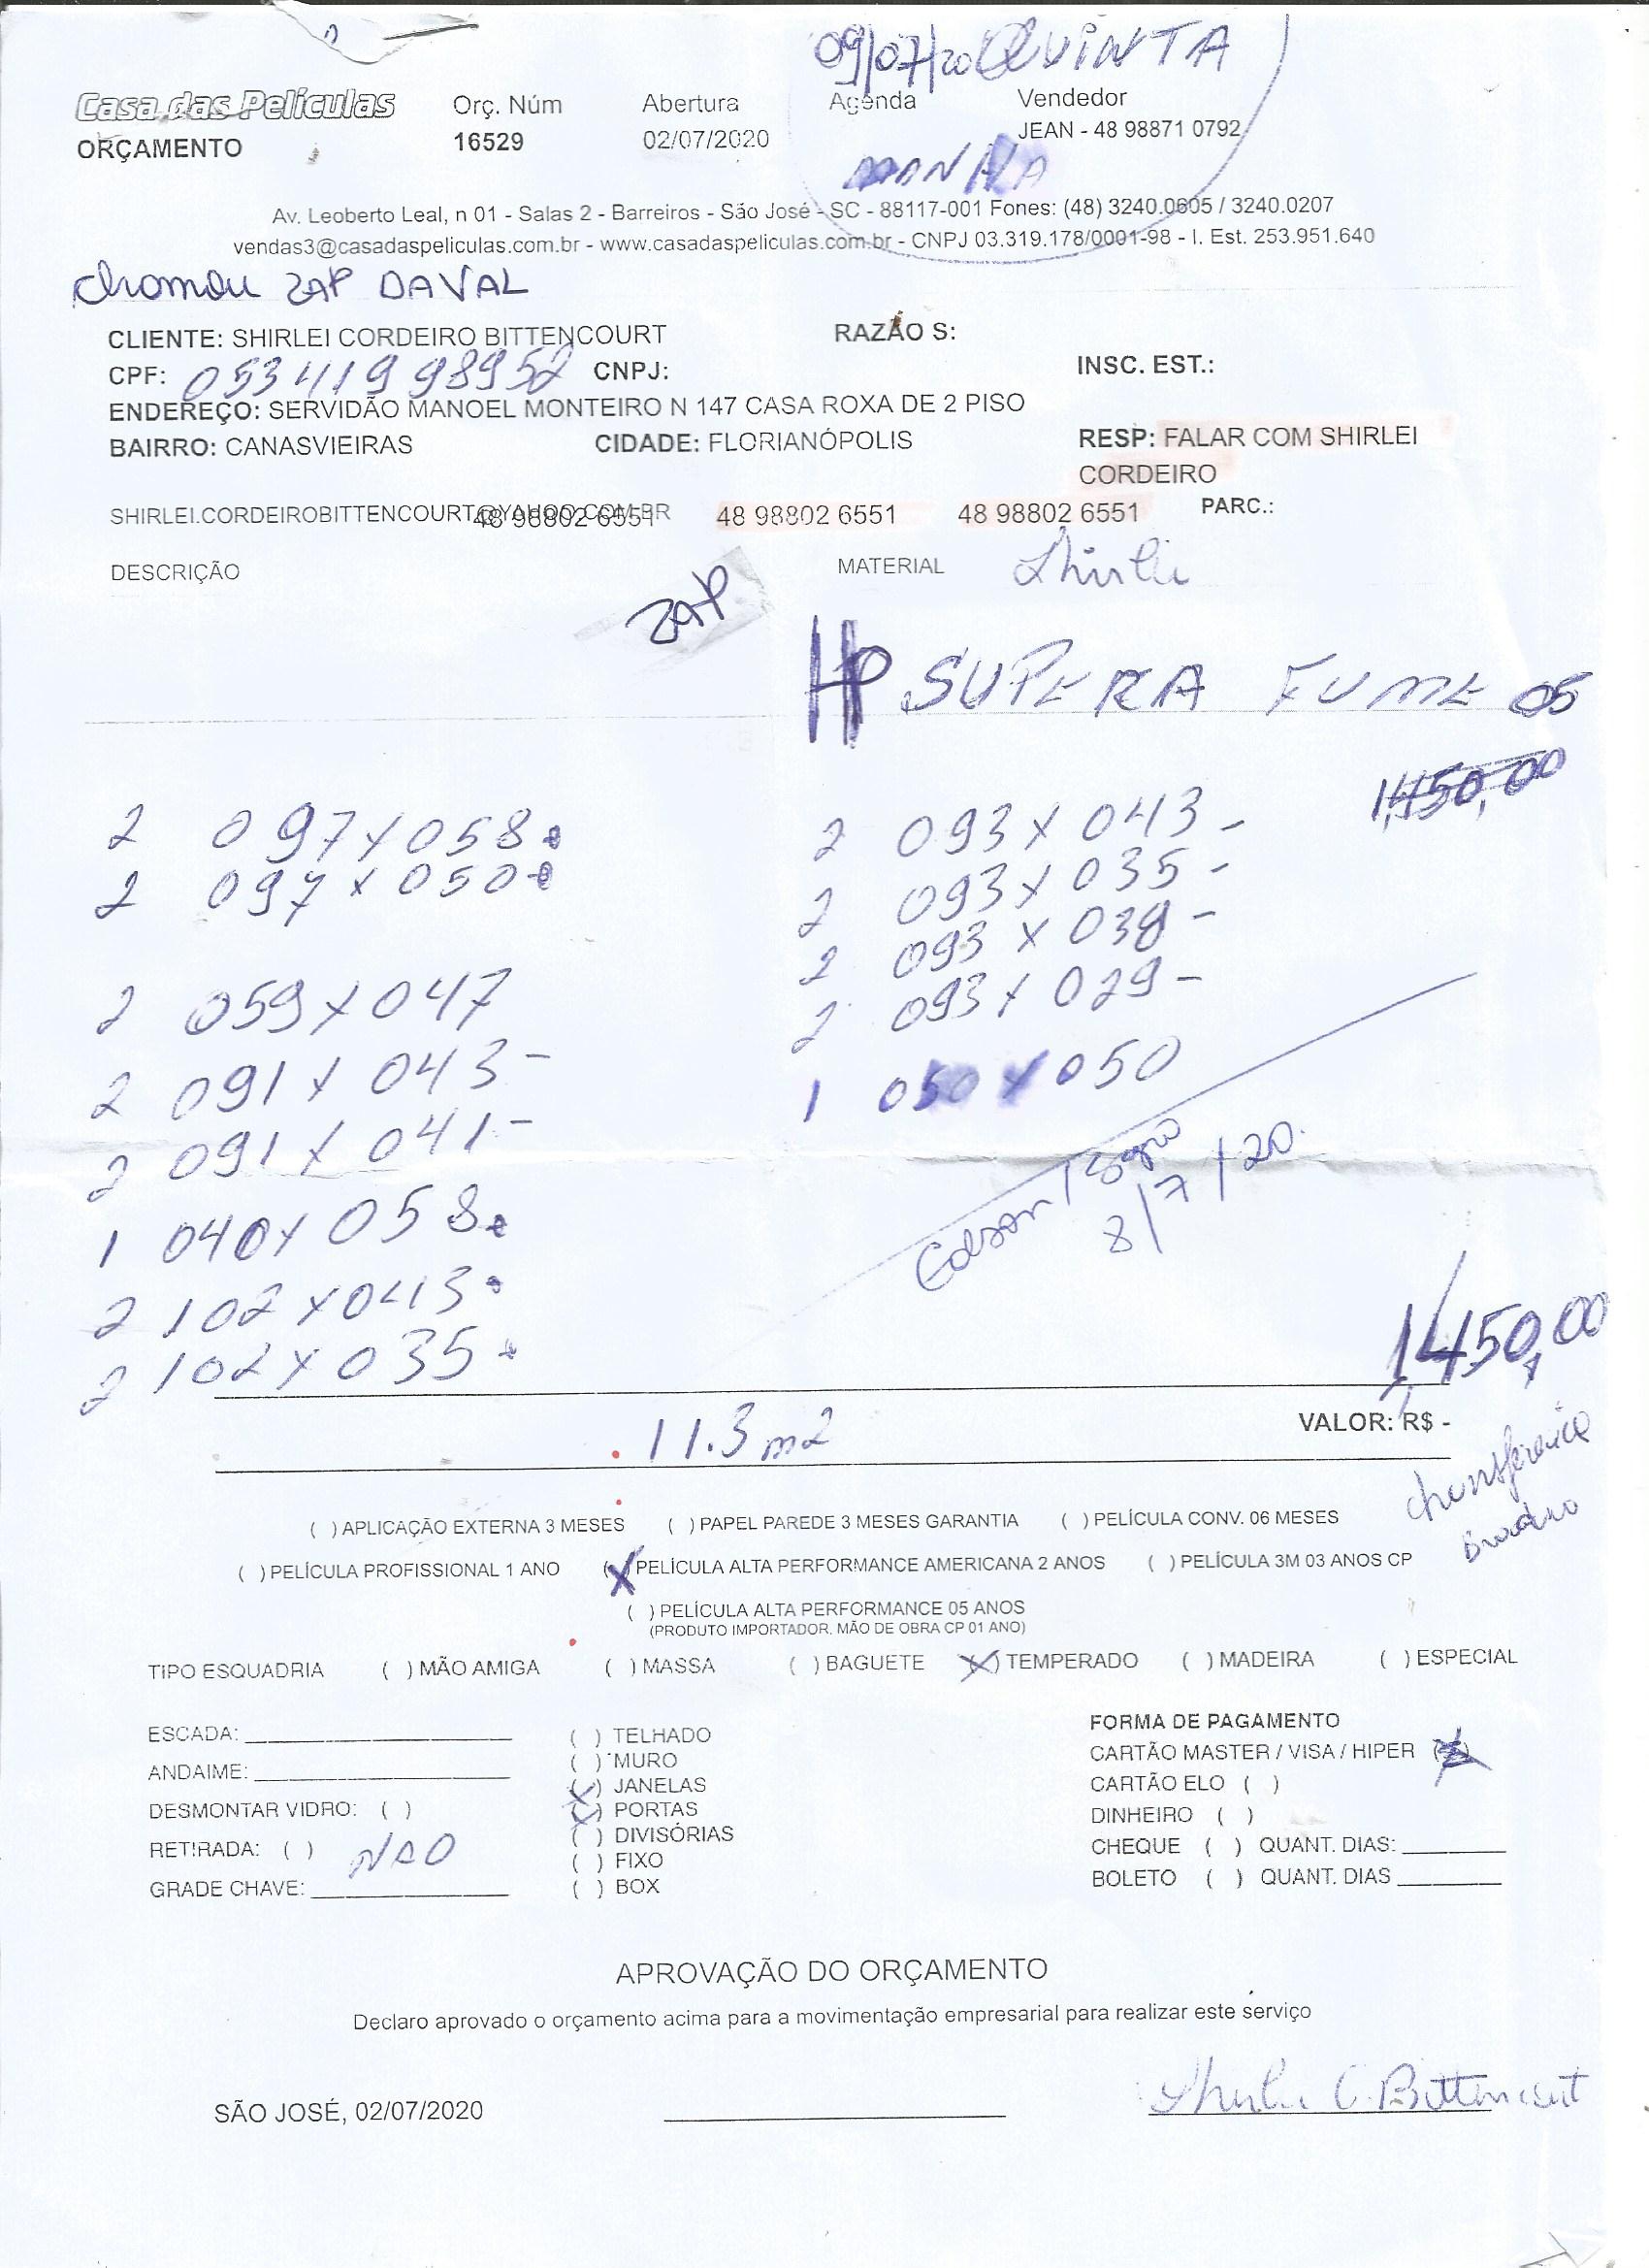 09/07/20 QUINTA
Casa das Películas Orç. Núm Abertura Agenda Vendedor
ORÇAMENTO 16529 02/07/2020 JEAN - 48 98871 0792
Av. Leoberto Leal, n 01 - Salas 2 - Barreiros - São José - SC - 88117-001 Fones: (48) 3240.0605 / 3240.0207
vendas3@casadaspeliculas.com.br - www.casadaspeliculas.com.br - CNPJ 03.319.178/0001-98 - I. Est. 253.951.640
chamou ZAP DAVAL
CLIENTE: SHIRLEI CORDEIRO BITTENCOURT RAZÃO S:
CPF: 05341998952 CNPJ: INSC. EST.:
ENDEREÇO: SERVIDÃO MANOEL MONTEIRO N 147 CASA ROXA DE 2 PISO
BAIRRO: CANASVIEIRAS CIDADE: FLORIANÓPOLIS RESP: FALAR COM SHIRLEI
CORDEIRO
SHIRLEI.CORDEIROBITTENCOURT@YAHOO.COM.BR 48 98802 6551 48 98802 6551 48 98802 6551 PARC.:
DESCRIÇÃO MATERIAL
ZAP
HP SUPERA FUME 05
1,450,00
2 097 x 058 2 093 x 043 -
2 097 x 050 2 093 x 035 -
2 093 x 038 -
2 059 x 047 2 093 x 029 -
2 091 x 043 - 1 050 x 050
2 091 x 041 -
8/7/20.
1 040 x 058
2 102 x 043
2 102 x 035
1450,00
11.3 m2 VALOR: R$ -
( ) APLICAÇÃO EXTERNA 3 MESES ( ) PAPEL PAREDE 3 MESES GARANTIA ( ) PELÍCULA CONV. 06 MESES
( ) PELÍCULA PROFISSIONAL 1 ANO (X) PELÍCULA ALTA PERFORMANCE AMERICANA 2 ANOS ( ) PELÍCULA 3M 03 ANOS CP
( ) PELÍCULA ALTA PERFORMANCE 05 ANOS
(PRODUTO IMPORTADOR. MÃO DE OBRA CP 01 ANO)
TIPO ESQUADRIA ( ) MÃO AMIGA ( ) MASSA ( ) BAGUETE (X) TEMPERADO ( ) MADEIRA ( ) ESPECIAL
ESCADA: ( ) TELHADO
ANDAIME: ( ) MURO
(X) JANELAS
DESMONTAR VIDRO: ( ) (X) PORTAS
RETIRADA: ( ) NAO ( ) DIVISÓRIAS
( ) FIXO
GRADE CHAVE: ( ) BOX
FORMA DE PAGAMENTO
CARTÃO MASTER / VISA / HIPER (X)
CARTÃO ELO ( )
DINHEIRO ( )
CHEQUE ( ) QUANT. DIAS:
BOLETO ( ) QUANT. DIAS
APROVAÇÃO DO ORÇAMENTO
Declaro aprovado o orçamento acima para a movimentação empresarial para realizar este serviço
SÃO JOSÉ, 02/07/2020